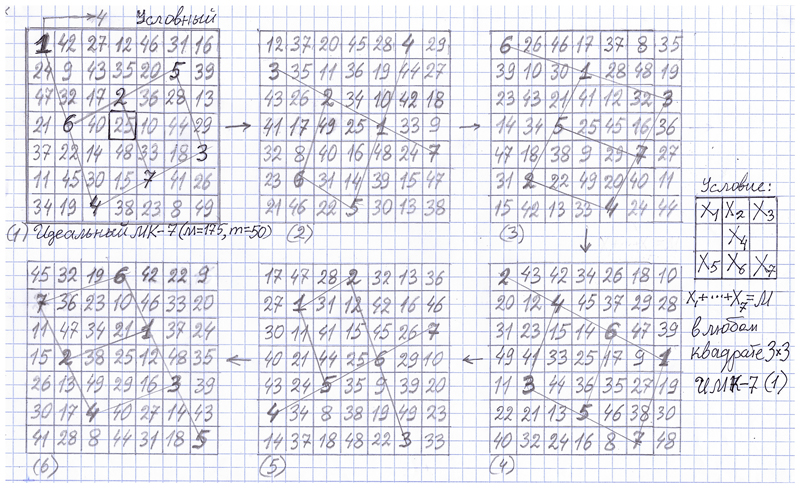 4 Условный
1 42 27 12 46 31 16
24 9 43 35 20 5 39
47 32 17 2 36 28 13
21 6 40 25 10 44 29
37 22 14 48 33 18 3
11 45 30 15 7 41 26
34 19 4 38 23 8 49
(1) Идеальный МК-7 (M=175, m=50)
12 37 20 45 28 4 29
3 35 11 36 19 44 27
43 26 2 34 10 42 18
41 17 49 25 1 33 9
32 8 40 16 48 24 7
23 6 31 14 39 15 47
21 46 22 5 30 13 38
(2)
6 26 46 17 37 8 35
39 10 30 1 28 48 19
23 43 21 41 12 32 3
14 34 5 25 45 16 36
47 18 38 9 29 7 27
31 2 22 49 20 40 11
15 42 13 33 4 24 44
(3)
Условие:
X1 X2 X3
X4
X5 X6 X7
X1+···+X7=M
в любом
квадрате 3x3
ИМК-7 (1)
2 43 42 34 26 18 10
20 12 4 45 37 29 28
31 23 15 14 6 47 39
49 41 33 25 17 9 1
11 3 44 36 35 27 19
22 21 13 5 46 38 30
40 32 24 16 8 7 48
(4)
17 47 28 2 32 13 36
27 1 31 12 42 16 46
30 11 41 15 45 26 7
40 21 44 25 6 29 10
43 24 5 35 9 39 20
4 34 8 38 19 49 23
14 37 18 48 22 3 33
(5)
45 32 19 6 42 22 9
7 36 23 10 46 33 20
11 47 34 21 1 37 24
15 2 38 25 12 48 35
26 13 49 29 16 3 39
30 17 4 40 27 14 43
41 28 8 44 31 18 5
(6)